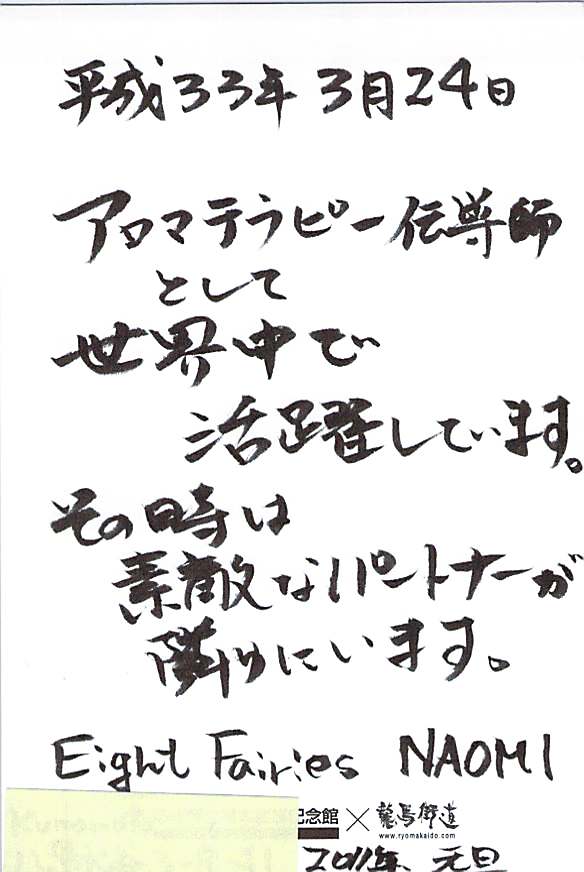 平成33年3月24日
アロマテラピー伝導師
として
世界中で
活躍しています。
その時は
素敵なパートナーが
隣りにいます。
Eight Fairies NAOMI
記念館×龍馬街道
www.ryomakaido.com
2011年 元旦